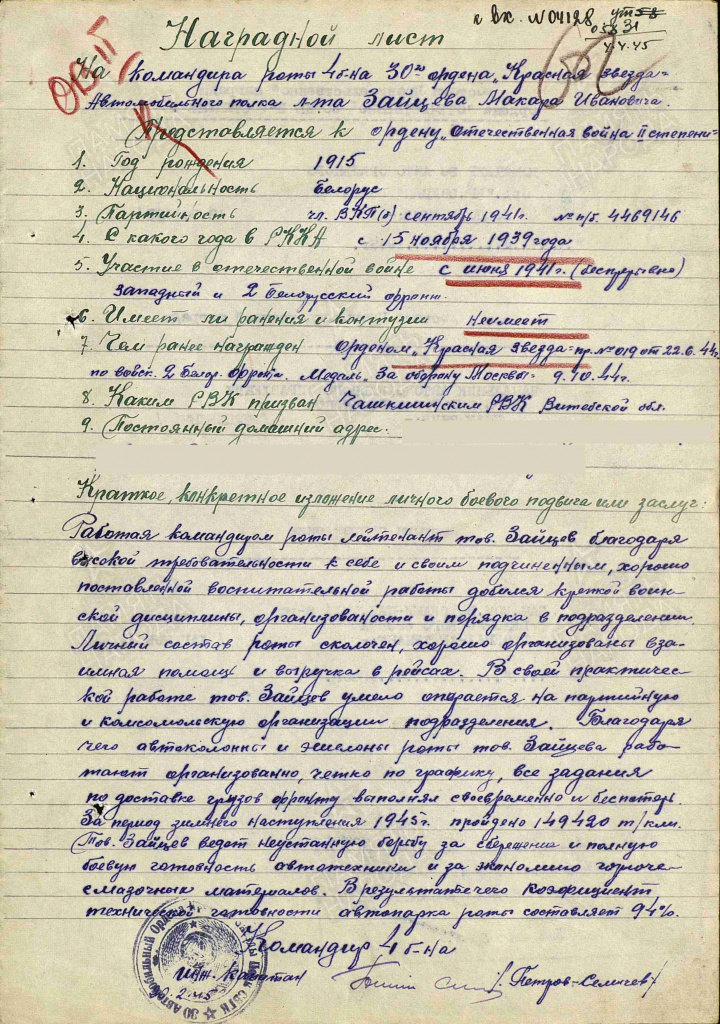 г Вх. N 04128
4.4.45
Наградной лист
На командира роты 4 б-на 30го ордена „Красная звезда"
Автомобильного полка л-та Зайцева Макара Ивановича.
Представляется к ордену „Отечественная война II степени"
1. Год рождения 1915
2. Национальность Белорус
3. Партийность чл. ВКП(б) сентябрь 1941г. № п/б. 4469146
4. С какого года в РККА с 15 ноября 1939 года
5. Участие в отечественной войне с июня 1941г. (беспрерывно)
Западный и 2 Белорусский фронт.
6. Имеет ли ранения и контузии Неимеет
7. Чем ранее награжден орденом „Красная звезда" пр. № 019 от 22.6.44г.
по войск. 2 Белор. фронта. Медаль „За оборону Москвы" 9.10.44г.
8. Каким РВК призван Чашкшинским РВК Витебской обл.
9. Постоянный домашний адрес.
Краткое, конкретное изложение личного боевого подвига или заслуг:
Работая командиром роты лейтенант тов. Зайцев благодаря
высокой требовательности к себе и своим подчиненным, хорошо
поставленной воспитательной работы добился крепкой воин-
ской дисциплины, организованости и порядка в подразделении.
Личный состав роты сколочен, хорошо организованы вза-
имная помощь и выручка в рейсах. В своей практичес-
кой работе тов. Зайцев умело опирается на партийную
и комсомольскую организации подразделения. Благодаря
чего автоколонны и эшелоны роты тов. Зайцева рабо-
тают организованно, четко по графику, все задания
по доставке грузов фронту выполнял своевременно и беспотерь.
За период зимнего наступления 1945г. пройдено 149420 т/клм.
Тов. Зайцев ведет неустанную борьбу за сбережение и полную
боевую готовность автотехники и за экономию горюче-
смазочных материалов. В результате чего коэфициент
технической готовности автопарка роты составляет 94%.
Командир 4 б-на
инж. капитан
/Петров-Семичев/